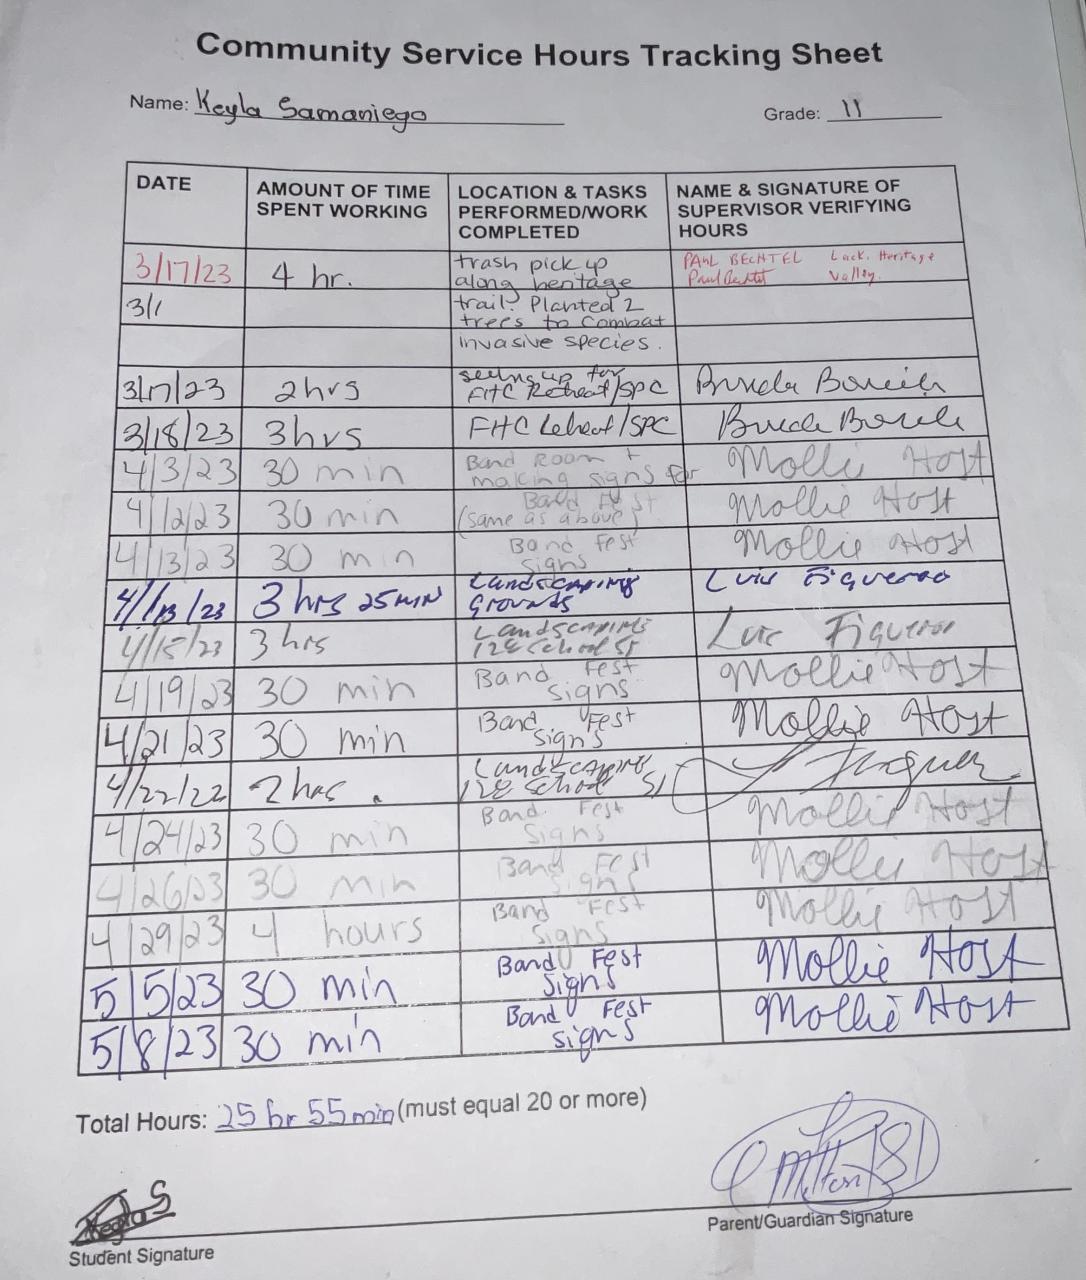 Community Service Hours Tracking Sheet
Name: Keyla Samaniego Grade: 11
DATE
AMOUNT OF TIME
SPENT WORKING
LOCATION & TASKS
PERFORMED/WORK
COMPLETED
NAME & SIGNATURE OF
SUPERVISOR VERIFYING
HOURS
3/17/23 4 hr. trash pick up PAUL BECHTEL Lack. Heritage
along heritage Paul Bechtel Valley.
3/1 trail. Planted 2
trees to combat
invasive species.
3/17/23 2hrs up for
FHC Retreat/SPC
3/18/23 3hrs FHC /SPC
4/3/23 30 min Band Room + Mollie Host
making signs for
4/12/23 30 min Band Fest Mollie Host
(same as above)
4/13/23 30 min Band Fest Mollie Host
signs
4/13/23 3 hrs 25 MIN Landscaping Luis Figueroa
Grounds
4/15/23 3 hrs Landscaping Luis Figueroa
128 School St
4/19/23 30 min Band Fest Mollie Host
signs
4/21/23 30 min Band Fest Mollie Host
signs
4/22/22 2 hrs. Landscaping
128 School St
4/24/23 30 min Band Fest Mollie Host
signs
4/26/23 30 min Band Fest Mollie Host
signs
4/29/23 4 hours Band Fest Mollie Host
signs
5/5/23 30 min Band Fest Mollie Host
signs
5/8/23 30 min Band Fest Mollie Host
signs
Total Hours: 25 hr 55 min (must equal 20 or more)
Keyla S
Milton
Student Signature
Parent/Guardian Signature